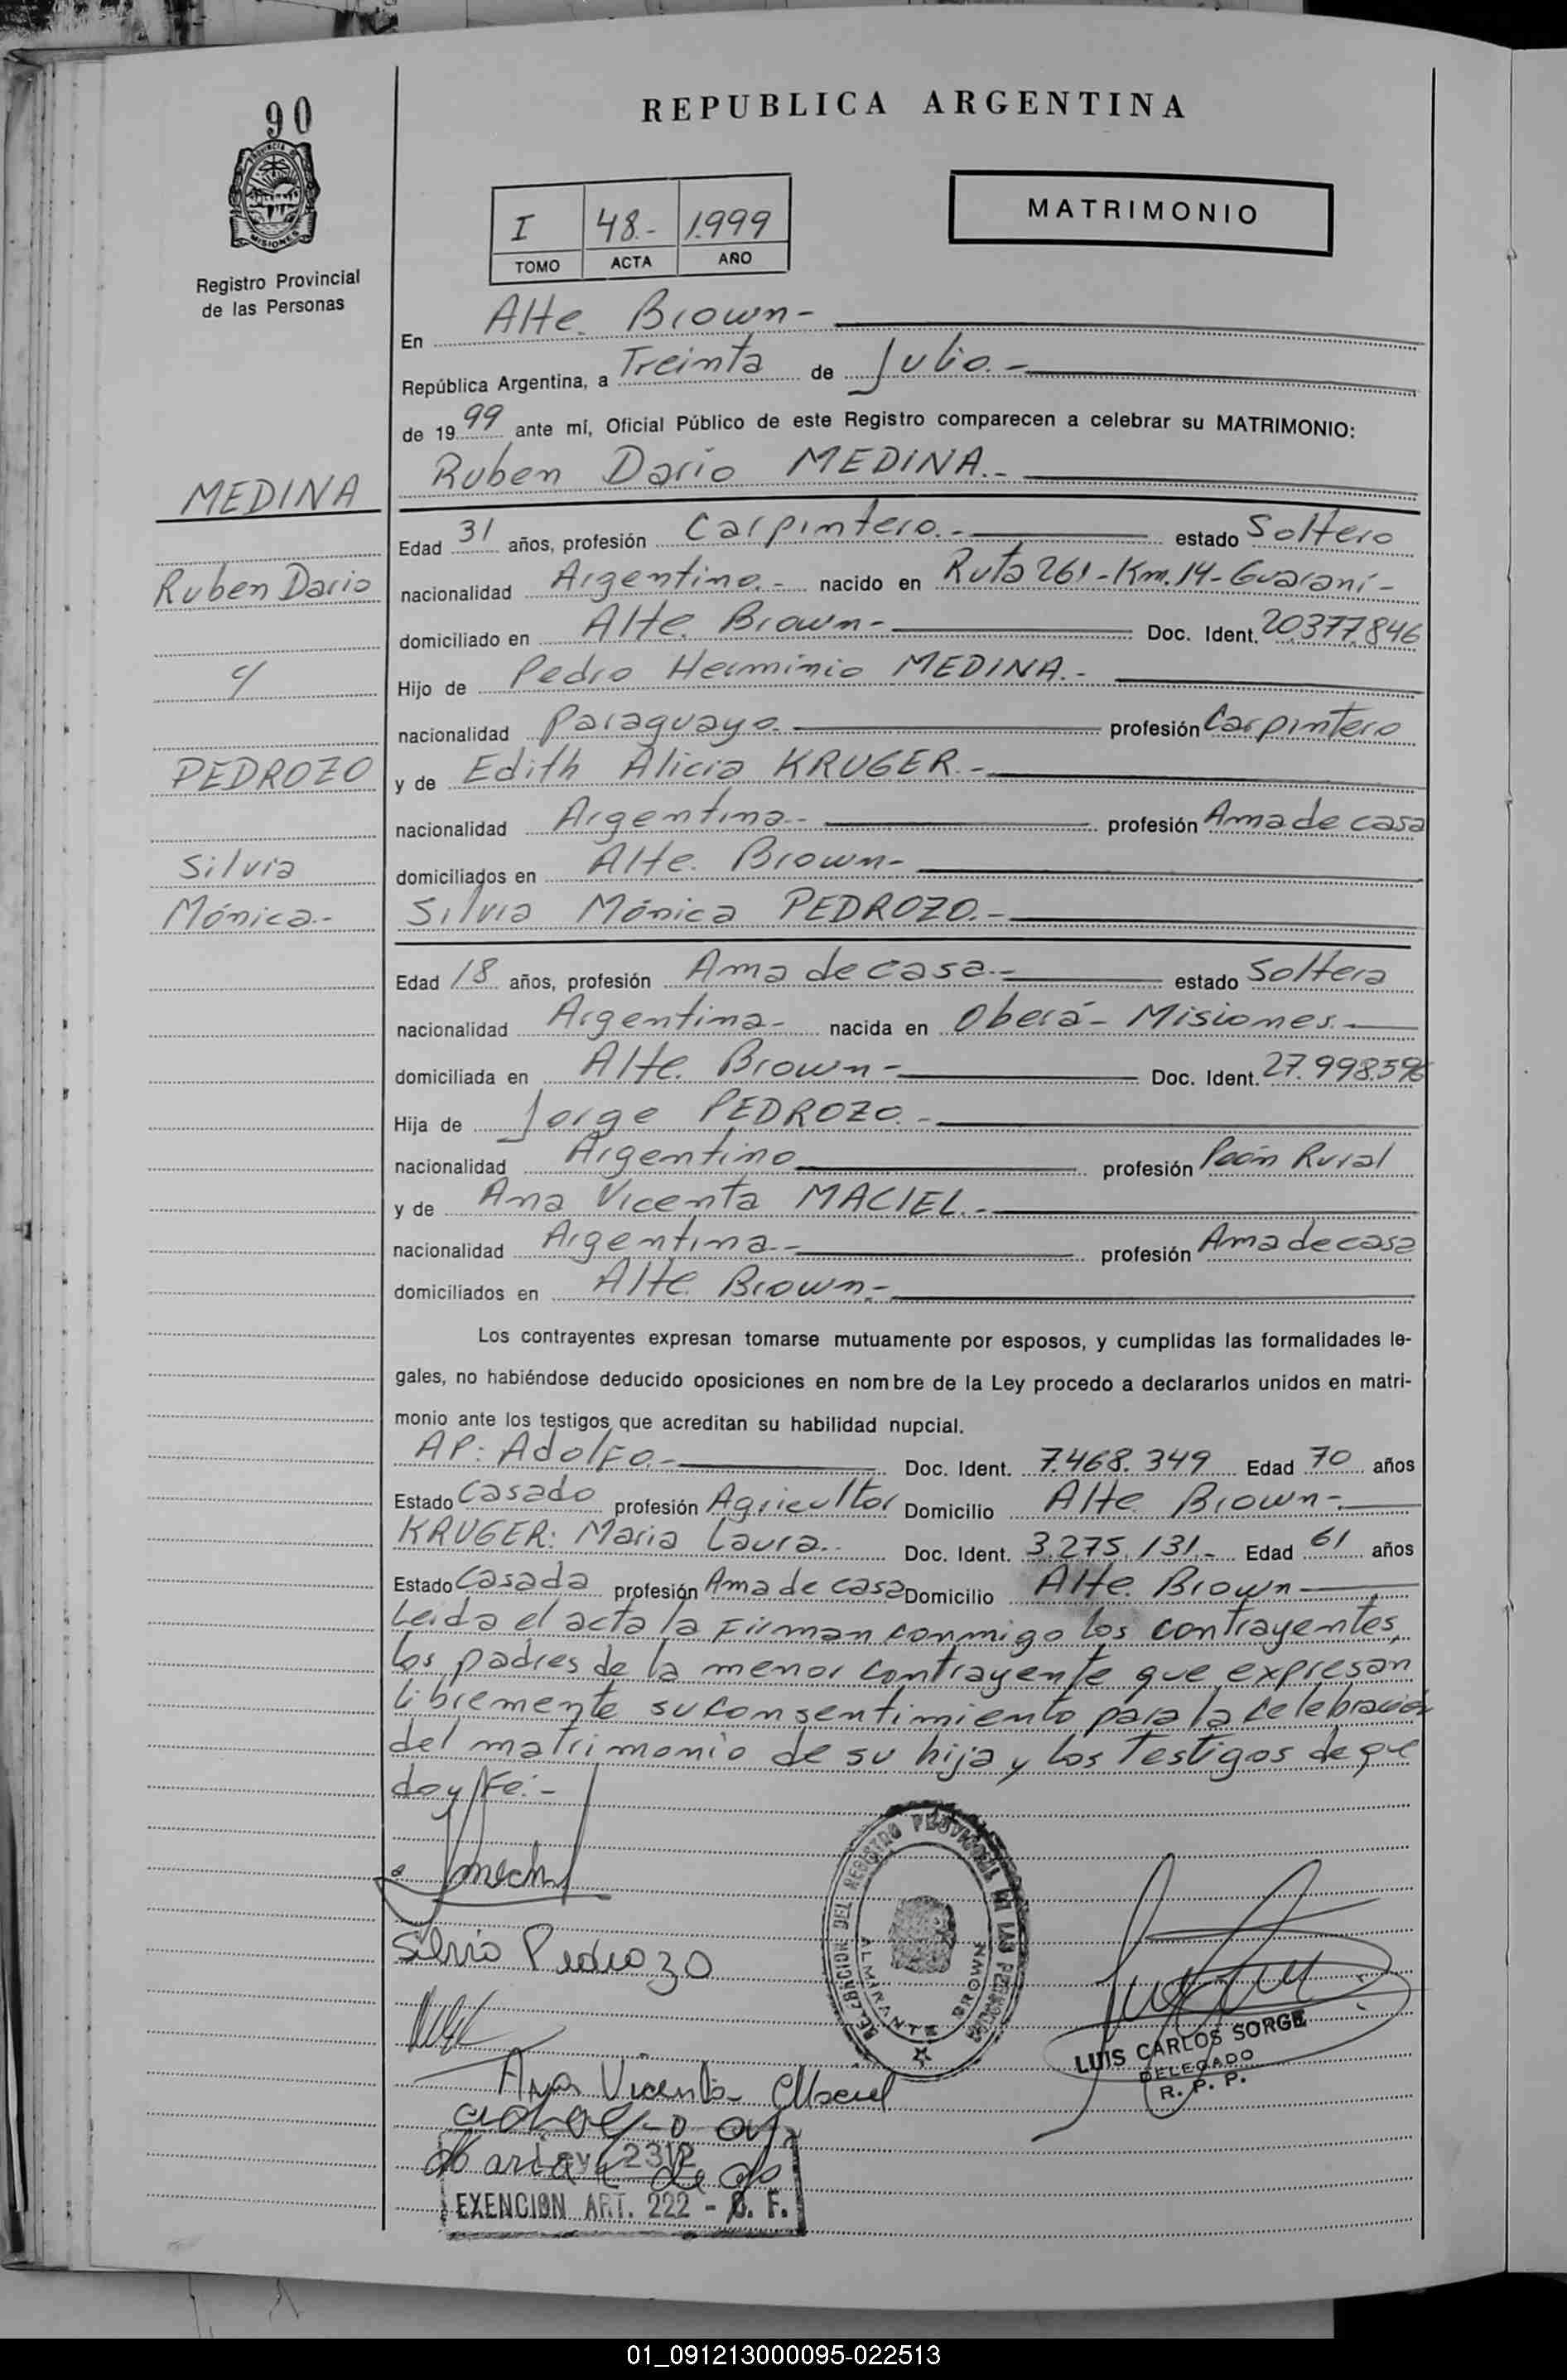 90
REPUBLICA ARGENTINA
PROVINCIA DE
MISIONES
Registro Provincial
de las Personas
I 48.- 1.999
TOMO ACTA AÑO
MATRIMONIO
En Alte. Brown-
República Argentina, a Treinta de Julio.-
de 1999 ante mí, Oficial Público de este Registro comparecen a celebrar su MATRIMONIO:
Ruben Dario MEDINA.-
MEDINA
Edad 31 años, profesión Carpintero.- estado Soltero
Ruben Dario
nacionalidad Argentino.- nacido en Ruta 261-Km.14-Guaraní-
domiciliado en Alte. Brown- Doc. Ident. 20.377.846
y
Hijo de Pedro Herminio MEDINA.-
nacionalidad Paraguayo. profesión Carpintero
PEDROZO
y de Edith Alicia KRUGER.-
nacionalidad Argentina.- profesión Ama de casa
Silvia
domiciliados en Alte. Brown-
Mónica.-
Silvia Mónica PEDROZO.-
Edad 18 años, profesión Ama de casa.- estado Soltera
nacionalidad Argentina- nacida en Oberá- Misiones.-
domiciliada en Alte. Brown- Doc. Ident. 27.998.596
Hija de Jorge PEDROZO.-
nacionalidad Argentino profesión Peón Rural
y de Ana Vicenta MACIEL.-
nacionalidad Argentina.- profesión Ama de casa
domiciliados en Alte. Brown.-
Los contrayentes expresan tomarse mutuamente por esposos, y cumplidas las formalidades le-
gales, no habiéndose deducido oposiciones en nombre de la Ley procedo a declararlos unidos en matri-
monio ante los testigos que acreditan su habilidad nupcial.
AP: Adolfo.- Doc. Ident. 7.468.349 Edad 70 años
Estado Casado profesión Agricultor Domicilio Alte Brown-
KRUGER: Maria Laura.. Doc. Ident. 3.275.131.- Edad 61 años
Estado Casada profesión Ama de casa Domicilio Alte. Brown-
Leida el acta la Firman conmigo los contrayentes,
los padres de la menor contrayente que expresan
libremente su consentimiento para la celebración
del matrimonio de su hija y los Testigos de que
doy Fé.-
Silvia Pedrozo
DELEGACION DEL REGISTRO PROVINCIAL DE LAS PERSONAS
ALMIRANTE BROWN
LUIS CARLOS SORGE
DELEGADO
R. P. P.
Ana Vicenta Maciel
Ley 2312
EXENCION ART. 222 - C. F.
01_091213000095-022513